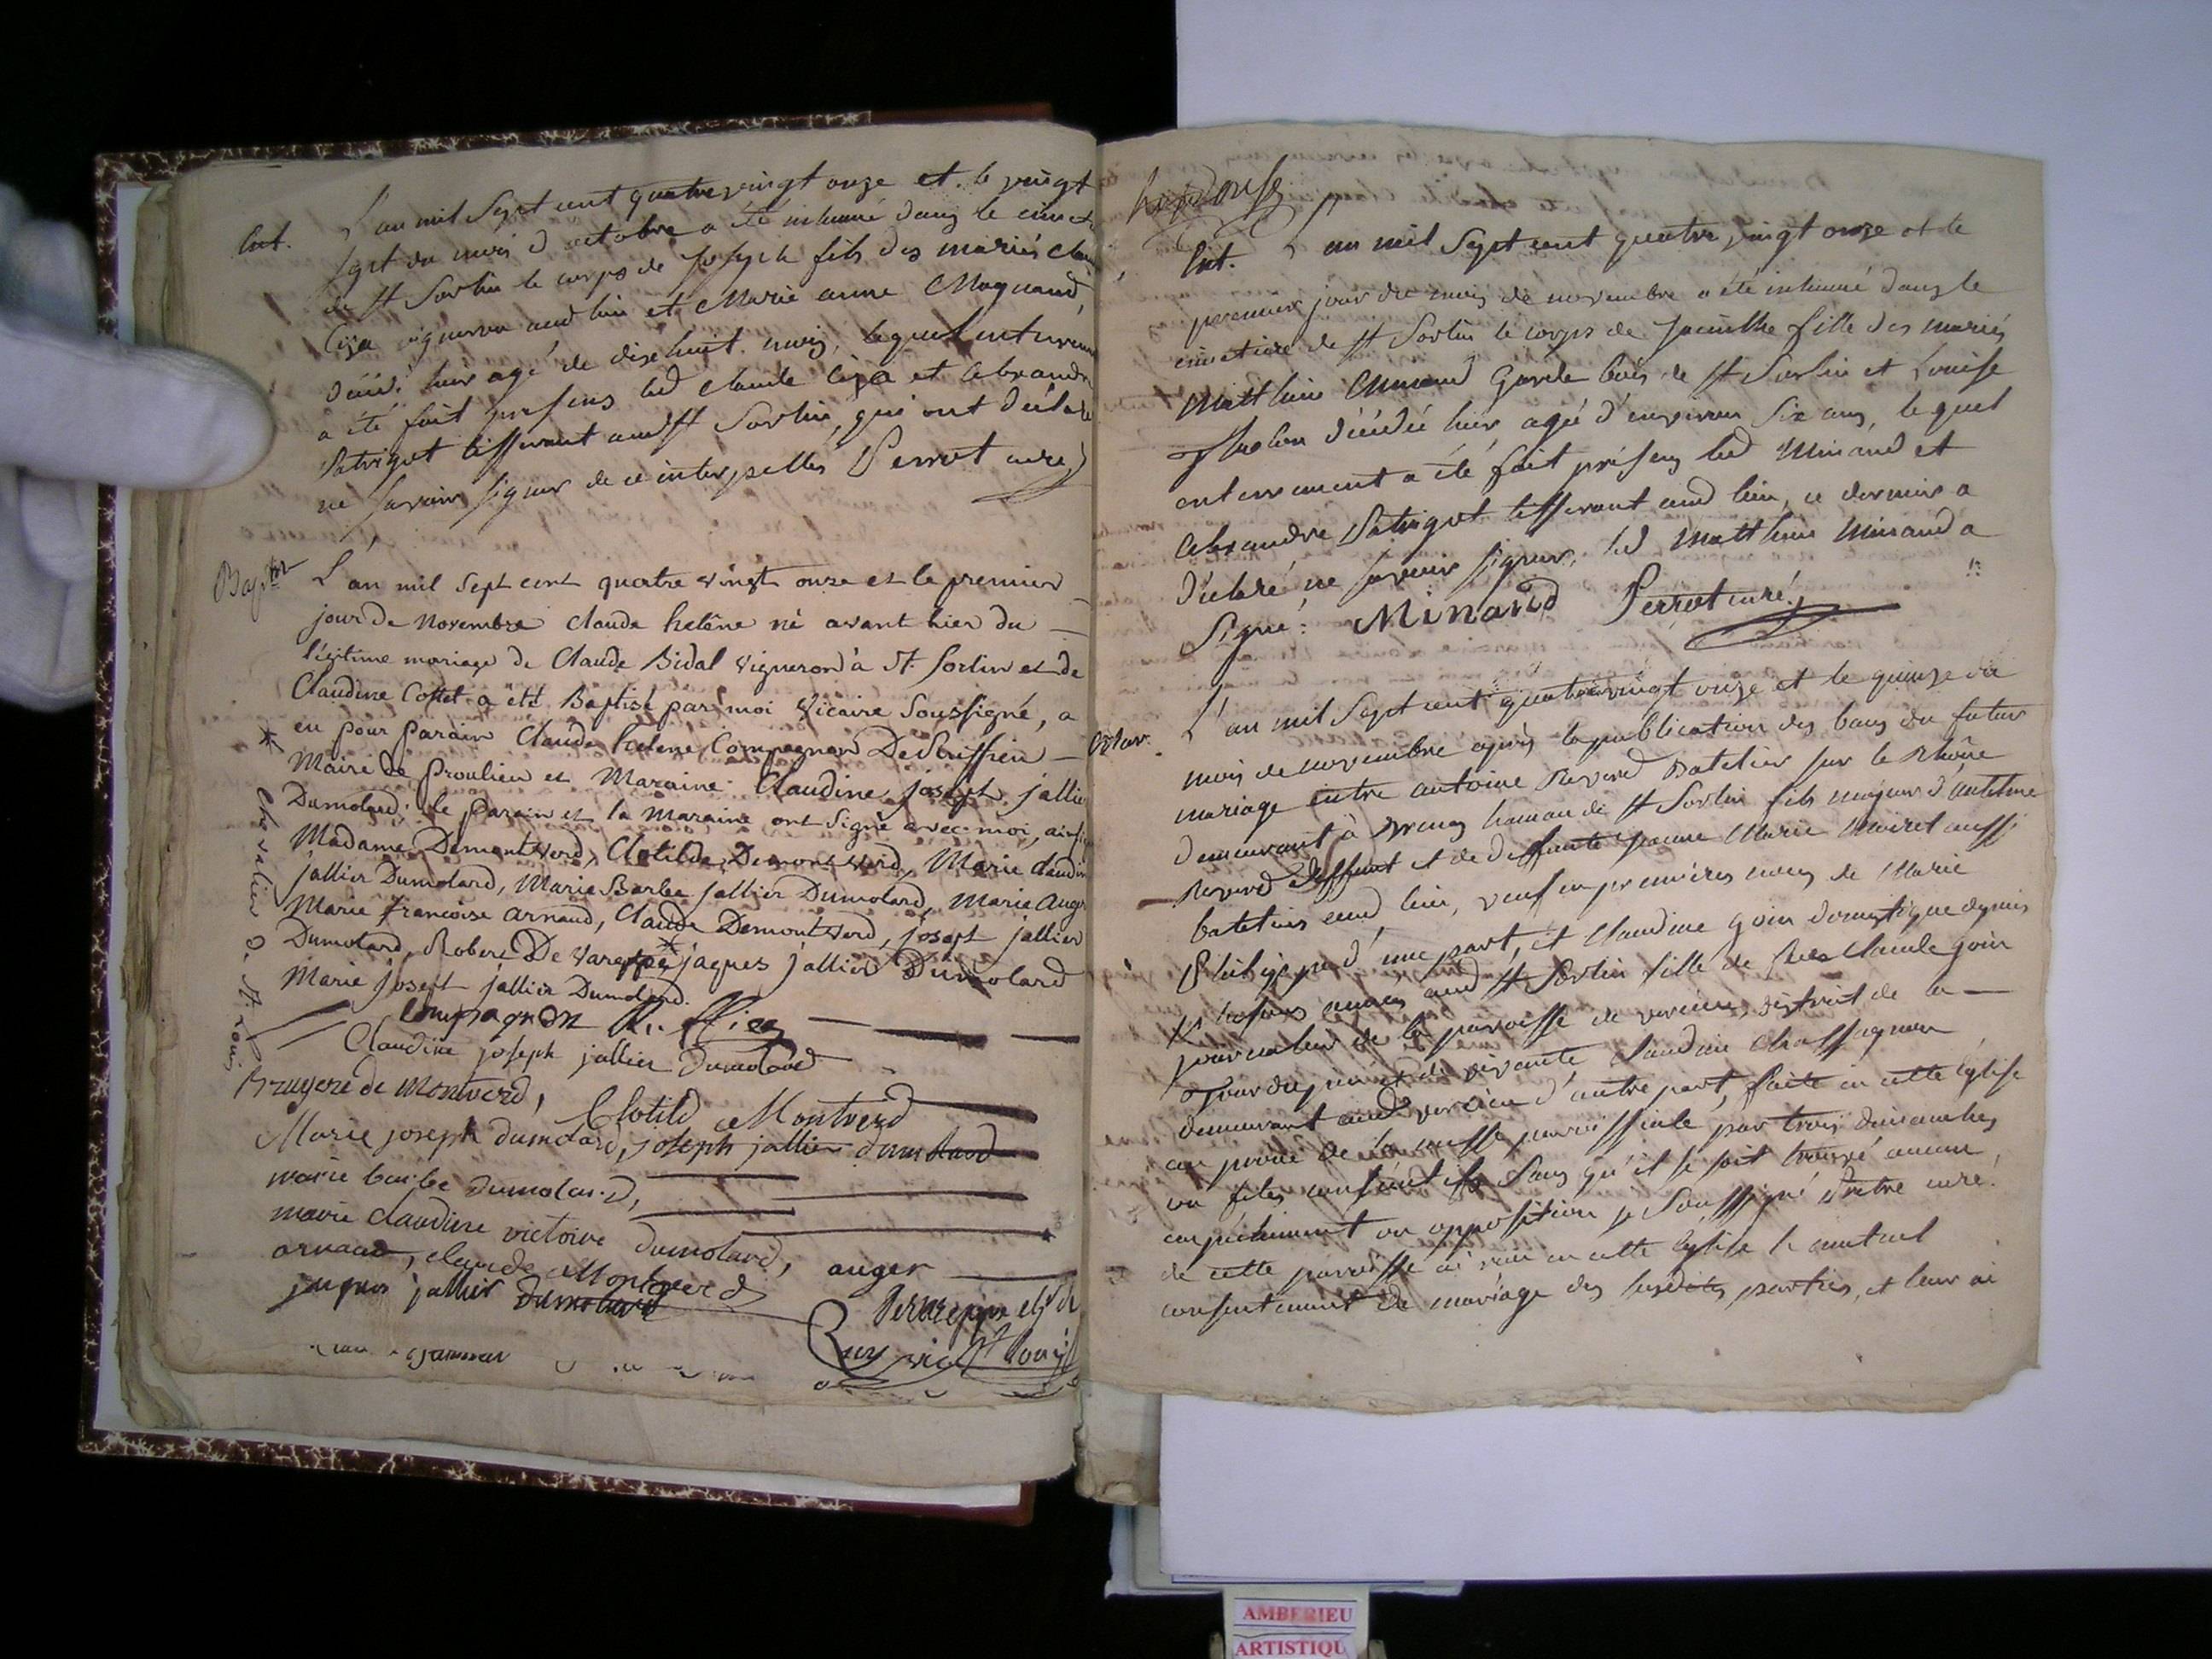 Ent. L'an mil sept cent quatre vingt onze et le vingt
sept du mois d'octobre a été inhumé dans le cimet
de St Sorlin le corps de Joseph fils des mariés Clau
vigneron aud lieu et Marie anne
décédé hier agé de dixhuit mois, lequel enterrem
a été fait présens led Claude et alexandre
Patriquet tisserant aud St Sorlin, qui ont déclaré
ne savoir signer de ce interpellés Perrot curé
Bapt L'an mil sept cent quatre vingt onze et le premier
jour de Novembre Claude helêne né avant hier du
légitime mariage de Claude Bidal vigneron à St. Sorlin et de
Claudine Cottet a été Baptisé par moi vicaire soussigné, a
eu pour parain Claude helene Compagnon De Ruffieu
Maire de proulieu et Maraine Claudine joseph jallier
Dumolard; le parain et la Maraine ont signé avec moi, ainsi
Madame Demontverd, Clotilde Demontverd, Marie claudine
jallier Dumolard, Marie Barbe jallier Dumolard, Marie Auger
Marie françoise arnaud, Claude Demontverd, joseph jallier
Dumolard, Robert De Vareppe* jaques jallier Dumolard
Marie joseph jallier Dumolard.
* chevalier d. St. Louis
Compagnon Ruffieu
Claudine joseph jallier dumolard
Bruyere de Montverd,
Clotild Montverd
Marie joseph dumolard, joseph jallier dumolard
marie barbe dumolard,
marie claudine victoire dumolard, auger
arnaud, claude Montverd
jaques jallier dumolard
Devareppe
vic St Louis
Ent. L'an mil sept cent quatre vingt onze et le
premier jour du mois de novembre a été inhumé dans le
cimetiere de St Sorlin le corps de Jacinthe fille des mariés
Matthieu Minand Garde bois de St Sorlin et Louise
décédée hier, agée d'environ six ans, lequel
enterrement a été fait présens led Minand et
alexandre Patriquet tisserant aud lieu, ce dernier a
déclaré ne savoir signer, led Matthieu Minand a
Signé: Minand Perrot curé
Mar. L'an mil sept cent quatre vingt onze et le quinze du
mois de novembre après la publication des bans du futur
mariage entre antoine Revend Batelier sur le Rhône
demeurant à hameau de St Sorlin fils majeur d'antelme
Revend deffunt et de deffunte jeanne Marie aussi
bateliers aud lieu, veuf en premières noces de Marie
Philippe d'une part, et Claudine goin domestique depuis
années aud St Sorlin fille de Claude goin
journalier de la paroisse de district de la
Tour du pin et de vivante Claudine Chassagneu
demeurant aud d'autre part, faite en cette église
au prone de la messe paroissiale par trois dimanches
ou fêtes consécutifs sans qu'il se soit trouvé aucun
empêchement ou opposition je soussigné prêtre curé
de cette paroisse ai reçu en cette église le mutuel
consentement de mariage des susdites parties, et leur ai
AMBERIEU
ARTISTIQU